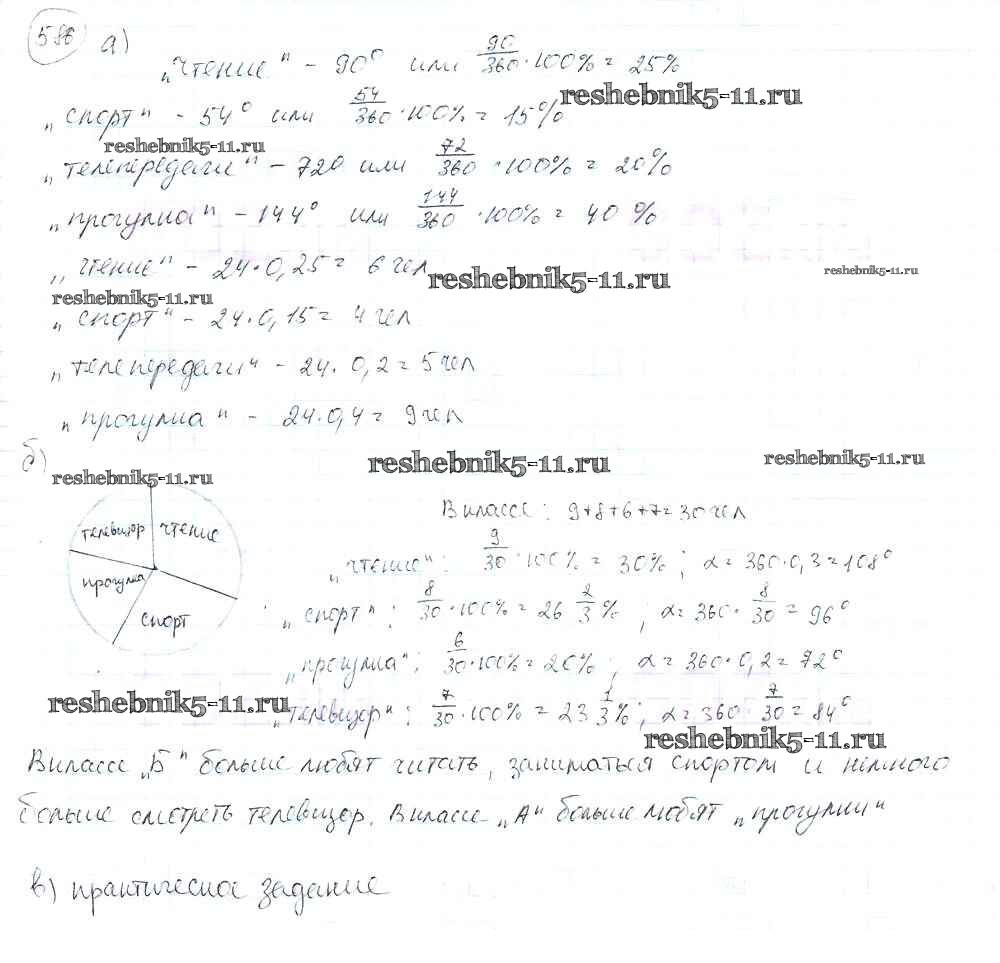 586 а)
„чтение" - 90° или 90/360 · 100% = 25%
reshebnik5-11.ru
„спорт" - 54° или 54/360 · 100% = 15%
reshebnik5-11.ru
„телепередачи" - 720 или 72/360 · 100% = 20%
„прогулка" - 144° или 144/360 · 100% = 40%
„чтение" - 24·0,25 = 6 чел
reshebnik5-11.ru
reshebnik5-11.ru
reshebnik5-11.ru
„спорт" - 24·0,15 = 4 чел
„телепередачи" - 24·0,2 = 5 чел
„прогулка" - 24·0,4 = 9 чел
б)
reshebnik5-11.ru
reshebnik5-11.ru
reshebnik5-11.ru
В классе: 9+8+6+7=30 чел
телевизор чтение
прогулка
спорт
„чтение": 9/30 · 100% = 30%; α = 360·0,3 = 108°
„спорт": 8/30 · 100% = 26 2/3 %; α = 360 · 8/30 = 96°
„прогулка": 6/30 · 100% = 20%; α = 360·0,2 = 72°
reshebnik5-11.ru
„телевизор": 7/30 · 100% = 23 1/3 %; α = 360 · 7/30 = 84°
reshebnik5-11.ru
В классе „Б" больше любят читать, заниматься спортом и немного
больше смотреть телевизор. В классе „А" больше любят „прогулки"
в) практическое задание